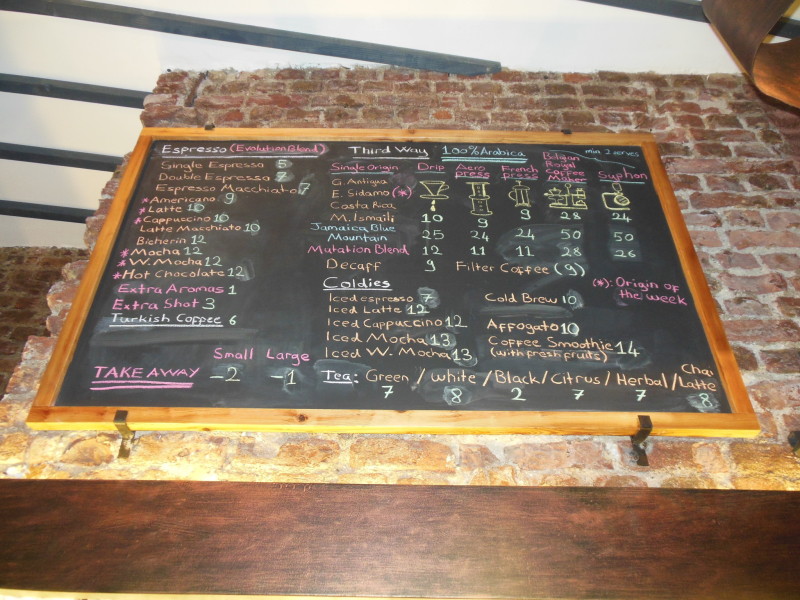 Espresso (Evolution Blend)
Single Espresso 5
Double Espresso 7
Espresso Macchiato 7
*Americano 9
*Latte 10
*Cappuccino 10
Latte Macchiato 10
Bicherin 12
*Mocha 12
*W. Mocha 12
*Hot Chocolate 12
Extra Aromas 1
Extra Shot 3
Turkish Coffee 6
Small Large
TAKE AWAY -2 -1
Third Way 100% Arabica min 2 serves
Single Origin Drip Aero press French press Belgian Royal Coffee Maker Syphon
G. Antigua
E. Sidamo (*)
Costa Rica
M. Ismaili 10 9 9 28 24
Jamaica Blue
Mountain 25 24 24 50 50
Mutation Blend 12 11 11 28 26
Decaff 9 Filter Coffee (9)
(*): Origin of
the week
Coldies
Iced espresso 7
Iced Latte 12
Iced Cappuccino 12
Iced Mocha 13
Iced W. Mocha 13
Cold Brew 10
Affogato 10
Coffee Smoothie 14
(with fresh fruits)
Tea: Green / white / Black / Citrus / Herbal / Chai Latte
7 8 2 7 7 8